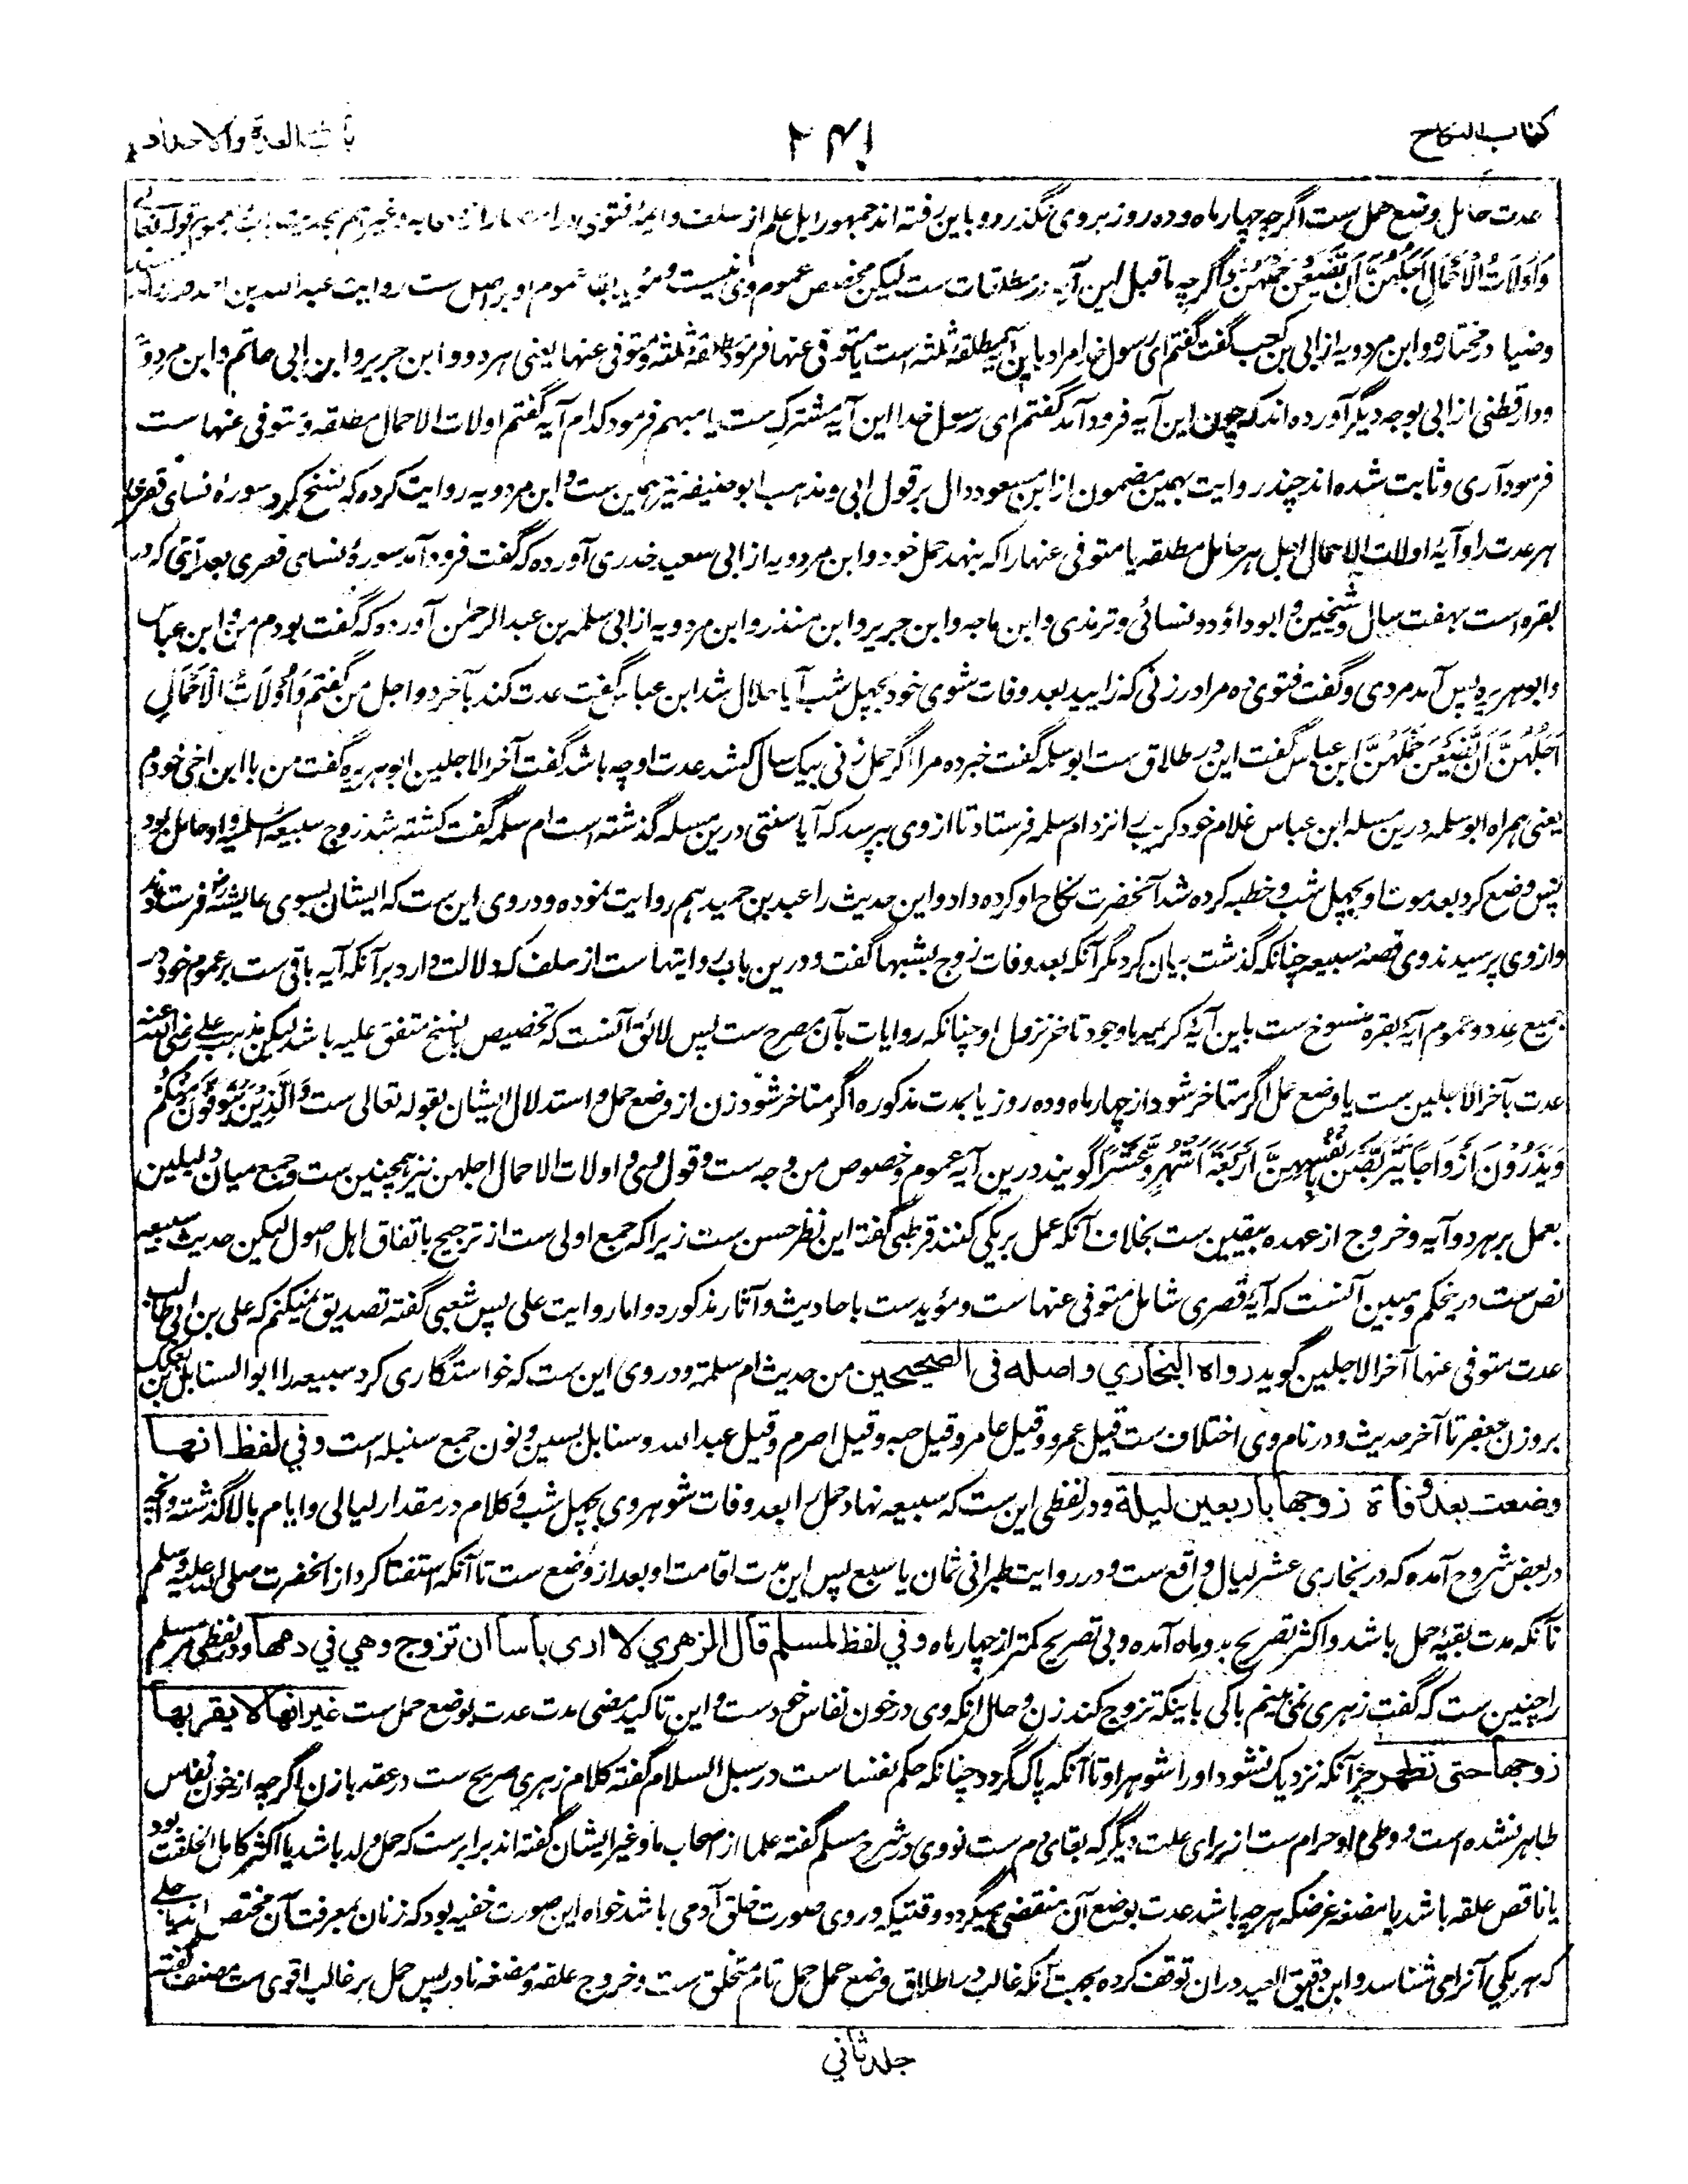 کتاب النکاح
۲۴۱
باب العدة والاحداد
عدت حامل وضع حمل ست اگرچه چهار ماه و ده روز بروی نگذرد و باین رفته اند جمهور اہل علم از سلف و ایمۂ فتوی
وَاُولَاتُ الْاَحْمَالِ اَجَلُهُنَّ اَنْ تَضَعْنَ حَمْلَهُنَّ و اگرچه ماقبل این آیه در مطلقات ست لیکن مخصص عموم وی نیست و مؤید بقاء عموم او بر اصل ست روایت عبدالله بن احمد در
وضیا در مختاره و ابن مردویه از ابی بن کعب گفت گفتم ای رسول خدا مراد باین آیه مطلقه ثلثه است یا متوفی عنها فرمود مطلقه ثلثه و متوفی عنها یعنی هر دو و ابن جریر و ابن ابی حاتم و ابن مردویه
و دارقطنی از ابی بوجه دیگر آورده اند که چون این آیه فرود آمد گفتم ای رسول خدا این آیه مشترک ست یا مبهم فرمود کدام آیه گفتم اولات الاحمال مطلقه و متوفی عنها ست
فرمود آری و ثابت شده اند چند روایت بهمین مضمون از ابن مسعود دال بر قول ابی و مذهب ابو حنیفه نیز همین ست و ابن مردویه روایت کرده که نسخ کرد سورۂ نسای قصری
هر عدت را و آیۂ اولات الاحمال اجل هر حامل مطلقه یا متوفی عنها را که بنهد حمل خود و ابن مردویه از ابی سعید خدری آورده که گفت فرود آمد سورۂ نسای قصری بعد آیتی که در
بقره است بهفت سال و شیخین و ابو داؤد و نسائی و ترمذی و ابن ماجه و ابن جریر و ابن منذر و ابن مردویه از ابی سلمه بن عبدالرحمٰن آورده که گفت بودم من و ابن عباس
و ابو هریره پس آمد مردی و گفت فتوی ده مرا در زنی که زایید بعد وفات شوی خود بچهل شب آیا حلال شد ابن عباس گفت عدت کند بآخر دو اجل من گفتم وَاُولَاتُ الْاَحْمَالِ
اَجَلُهُنَّ اَنْ تَضَعْنَ حَمْلَهُنَّ ابن عباس گفت این در طلاق ست ابو سلمه گفت خبر ده مرا اگر حمل زنی بیک سال کشد عدت او چه باشد گفت آخر الاجلین ابو هریره گفت من با ابن اخی خودم
یعنی همراه ابو سلمه درین مسئله ابن عباس غلام خود کریب را نزد ام سلمه فرستاد تا از وی بپرسد که آیا سنتی درین مسئله گذشته است ام سلمه گفت کشته شد زوج سبیعه اسلمیه و او حامل بود
پس وضع کرد بعد موت او بچهل شب و خطبه کرده شد آنحضرت نکاح او کرده داد و این حدیث را عبد بن حمید هم روایت نموده و در وی این ست که ایشان بسوی عایشه رض فرستادند
و از وی پرسیدند وی قصۂ سبیعه چنانکه گذشت بیان کرد مگر آنکه بعد وفات زوج بشبها گفت و درین باب روایتها ست از سلف که دلالت دارد بر آنکه آیه باقی ست بر عموم خود در
جمیع عدد و عموم آیۂ بقره منسوخ ست باین آیۂ کریمه باوجود تاخر نزول او چنانکه روایات بآن مصرح ست پس لائق آنست که تخصیص یا نسخ متفق علیه باشد لیکن مذهب علی رضی الله عنه
عدت بآخر الاجلین ست یا وضع حمل اگر متاخر شود از چهار ماه و ده روز یا بمدت مذکوره اگر متاخر شود زن از وضع حمل و استدلال ایشان بقوله تعالی ست وَالَّذِیْنَ یُتَوَفَّوْنَ مِنْکُمْ
وَیَذَرُوْنَ اَزْوَاجًا یَّتَرَبَّصْنَ بِاَنْفُسِهِنَّ اَرْبَعَةَ اَشْهُرٍ وَّعَشْرًا گویند درین آیه عموم و خصوص من وجه ست و قول وی و اولات الاحمال اجلهن نیز همچنین ست و جمع میان دلیلین
بعمل بر هر دو آیه و خروج از عهده بیقین ست بخلاف آنکه عمل بر یکی کنند قرطبی گفته این نظر حسن ست زیرا که جمع اولی ست از ترجیح باتفاق اهل اصول لیکن حدیث سبیعه
نص ست درینحکم و مبین آنست که آیۂ قصری شامل متوفی عنها ست و مؤید ست باحادیث و آثار مذکوره و اما روایت علی پس شعبی گفته تصدیق نمیکنم که علی بن ابی طالب
عدت متوفی عنها آخر الاجلین گوید رواه البخاري و اصله فی الصحیحین من حدیث ام سلمة و در وی این ست که خواستگاری کرد سبیعه را ابو السنابل بن بعکک
بر وزن جعفر تا آخر حدیث و در نام وی اختلاف ست قیل عمرو و قیل عامر و قیل حبه و قیل اصرم و قیل عبد الله و سنابل بسین و نون جمع سنبله است و في لفظ انها
وضعت بعد وفاة زوجها باربعین لیلة و در لفظی این ست که سبیعه نهاد حمل را بعد وفات شوهر وی بچهل شب و کلام در مقدار لیالی و ایام بالا گذشته و آنچه
در بعض شروح آمده که در بخاری عشر لیال واقع ست و در روایت طبرانی ثمان یا سبع پس این مدت اقامت او بعد از وضع ست تا آنکه استفتا کرد از آنحضرت صلی الله علیه وسلم
نآنکه مدت بقیۂ حمل باشد و اکثر تصریح بدو ماه آمده و بی تصریح کمتر از چهار ماه و في لفظ لمسلم قال الزهري لا اری باسا ان تزوج وهي في دمها و در لفظی مر مسلم
را چنین ست که گفت زهری نمی بینم باکی باینکه تزوج کند زن و حال آنکه وی در خون نفاس خود ست و این تاکید مضی مدت عدت بوضع حمل ست غیر انها لا یقربها
زوجها حتی تطهر جز آنکه نزدیک نشود او را شوهر او تا آنکه پاک گردد چنانکه حکم نفسا ست در سبل السلام گفته کلام زهری صریح ست در عقد با زن اگرچه از خون نفاس
طاهر نشده است و وطی او حرام ست از برای علت دیگر که بقای دم ست نووی در شرح مسلم گفته علما از اصحاب ما و غیر ایشان گفته اند برابر ست که حمل ولد باشد یا اکثر کامل الخلقت بود
یا ناقص علقه باشد یا مضغه غرضکه هر چه باشد عدت بوضع آن منقضی میگردد وقتیکه در وی صورت خلق آدمی باشد خواه این صورت خفیه بود که زنان بمعرفت آن مختص اند یا جلی
که هر یکی آنرا می شناسد و ابن دقیق العید دران توقف کرده بجهت آنکه غالب در اطلاق وضع حمل حمل تام متخلق ست و خروج علقه و مضغه نادر پس حمل بر غالب اقوی ست مصنف گفته
جلد ثاني